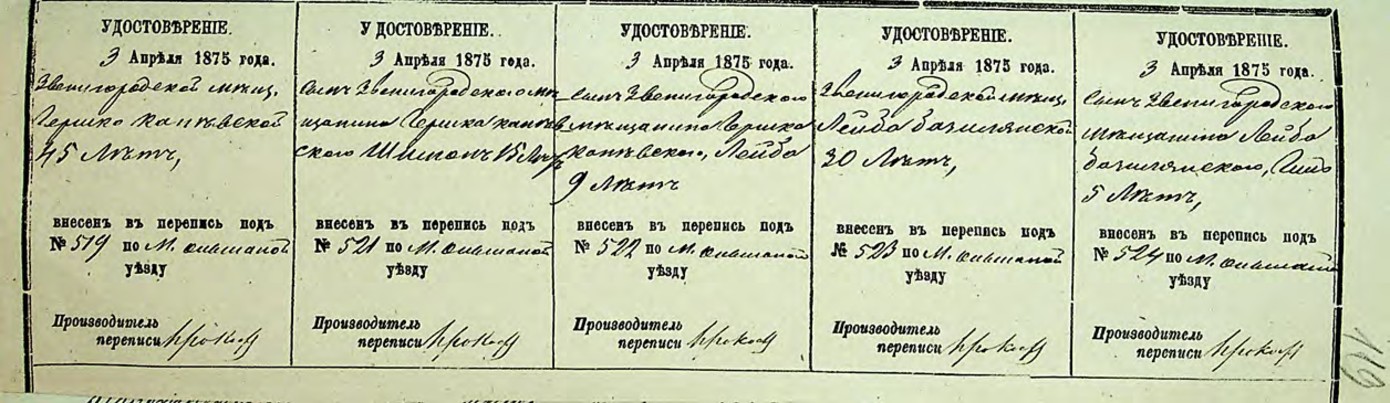 УДОСТОВѢРЕНІЕ.
3 Апрѣля 1875 года.
Звенигородской мѣщ.
Гершко Каневской
45 Лѣтъ,
внесенъ въ перепись подъ
№ 519 по М. Ольшаной
уѣзду
Производитель
переписи
УДОСТОВѢРЕНІЕ.
3 Апрѣля 1875 года.
Сынъ Звенигородского мѣ
щанина Гершка Канев
ского 15 Лѣтъ
внесенъ въ перепись подъ
№ 521 по М. Ольшаной
уѣзду
Производитель
переписи
УДОСТОВѢРЕНІЕ.
3 Апрѣля 1875 года.
Сынъ Звенигородского
мѣщанина Гершка
Каневского, Лейба
9 Лѣтъ
внесенъ въ перепись подъ
№ 522 по М. Ольшаной
уѣзду
Производитель
переписи
УДОСТОВѢРЕНІЕ.
3 Апрѣля 1875 года.
Звенигородской мѣщ.
Лейба Базилянской
30 Лѣтъ,
внесенъ въ перепись подъ
№ 523 по М. Ольшаной
уѣзду
Производитель
переписи
УДОСТОВѢРЕНІЕ.
3 Апрѣля 1875 года.
Сынъ Звенигородского
мѣщанина Лейба
Базилянского,
5 Лѣтъ,
внесенъ въ перепись подъ
№ 524 по М. Ольшаной
уѣзду
Производитель
переписи